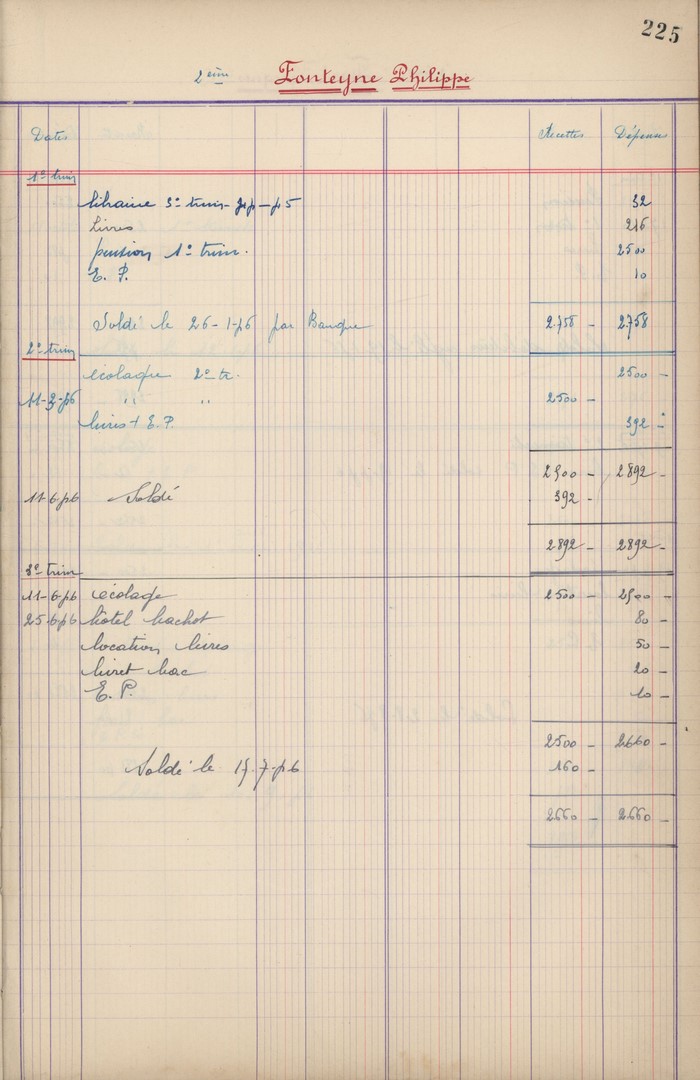 225
2èm Fonteyne Philippe
Dates Recettes Dépenses
1° trim
librairie 3° trim- 32
Livres 216
pension 1° trim. 2500
E. P. 10
Soldé le 26-1-56 par Banque 2.758 - 2.758
2° trim
écolage 2° tr. 2500 -
11-3-56 " " 2500 -
livres + E.P. 392 -
2500 - 2892 -
11-6-56 Soldé 392 -
2892 - 2892 -
3° trim
11-6-56 écolage 2500 - 2500 -
25-6-56 hôtel bachot 80 -
location livres 50 -
livret bac 20 -
E. P. 10 -
2500 - 2660 -
Soldé le 15-7-56 160 -
2660 - 2660 -